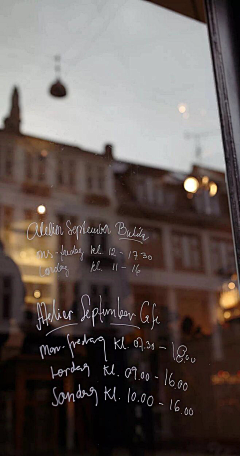 Atelier September Butik
ons - fredag kl. 12 - 17.30
Lørdag kl. 11 - 16
Atelier September Cafe
Mon - fredag kl. 07.30 - 18.00
Lørdag kl. 09.00 - 16.00
Søndag kl. 10.00 - 16.00